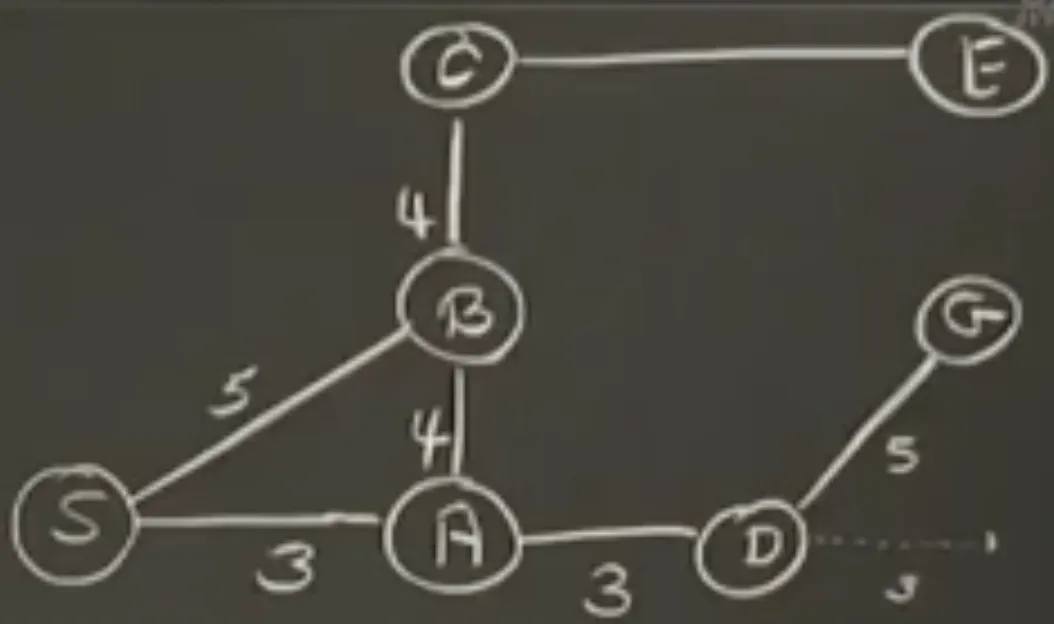 C E
4
B
G
5
4
5
S A D
3 3 3